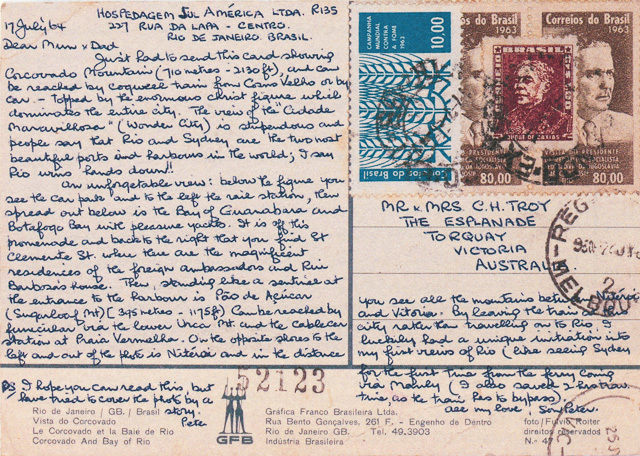 HOSPEDAGEM SUL AMÉRICA LTDA. R135
17 July '64 227 RUA DA LAPA - CENTRO.
RIO DE JANEIRO. BRASIL.
Dear Mum & Dad
Just had to send this card showing
Corcovado Mountain (710 metres - 2130 ft) and can
be reached by cogwheel train from Cosme Velho or by
car. - Topped by the enormous Christ figure which
dominates the entire city. The view of the "Cidade
Maravilhosa" (Wonder City) is stupendous and
people say that Rio and Sydney are the two most
beautiful ports and harbours in the world; I say
Rio wins hands down!!
An unforgetable view: below the figure you
see the car park and to the left the rail station, then
spread out below is the Bay of Guanabara and
Botafogo Bay with pleasure yachts. It is off this
promenade and back to the right that you find St
Clemente St. where there are the magnificent
residences of the foreign ambassadors and Rui
Barbosa's house. Then, standing like a sentinel at
the entrance to the harbour is Pão de Açúcar
(Sugarloaf Mt) [395 metres - 1175 ft] Can be reached by
funicular via the lower Urca Mt. and the Cablecar
station at Praia Vermelha. On the opposite shores to the
left and out of the photo is Niterói and in the distance
you see all the mountains between Niterói
and Vitoria. By leaving the train
city rather than travelling on to Rio, I
luckily had a unique initiation into
my first views of Rio (like seeing Sydney
for the first time from the ferry coming
via Manly (I also saved 2 hrs train
time, as the train has to bypass)
all my love, Son Peter.
PS I hope you can read this, but
have tried to cover the photo by a
story. Pete
MR & MRS C.H. TROY
THE ESPLANADE
TORQUAY
VICTORIA
AUSTRALIA
CAMPANHA MUNDIAL CONTRA A FOME 1963
10,00
Correios do Brasil
Correios do Brasil
1963
1963
DUQUE DE CAXIAS
PRESIDENTE
80,00
80,00
52123
Rio de Janeiro / GB. / Brasil
Vista do Corcovado
Le Corcovado et la Baie de Rio
Corcovado And Bay of Rio
GFB
Gráfica Franco Brasileira Ltda.
Rua Bento Gonçalves, 261 F. - Engenho de Dentro
Rio de Janeiro GB. Tel. 49.3903
Indústria Brasileira
foto/Fulvio Roiter
direitos reservados
N.º 47